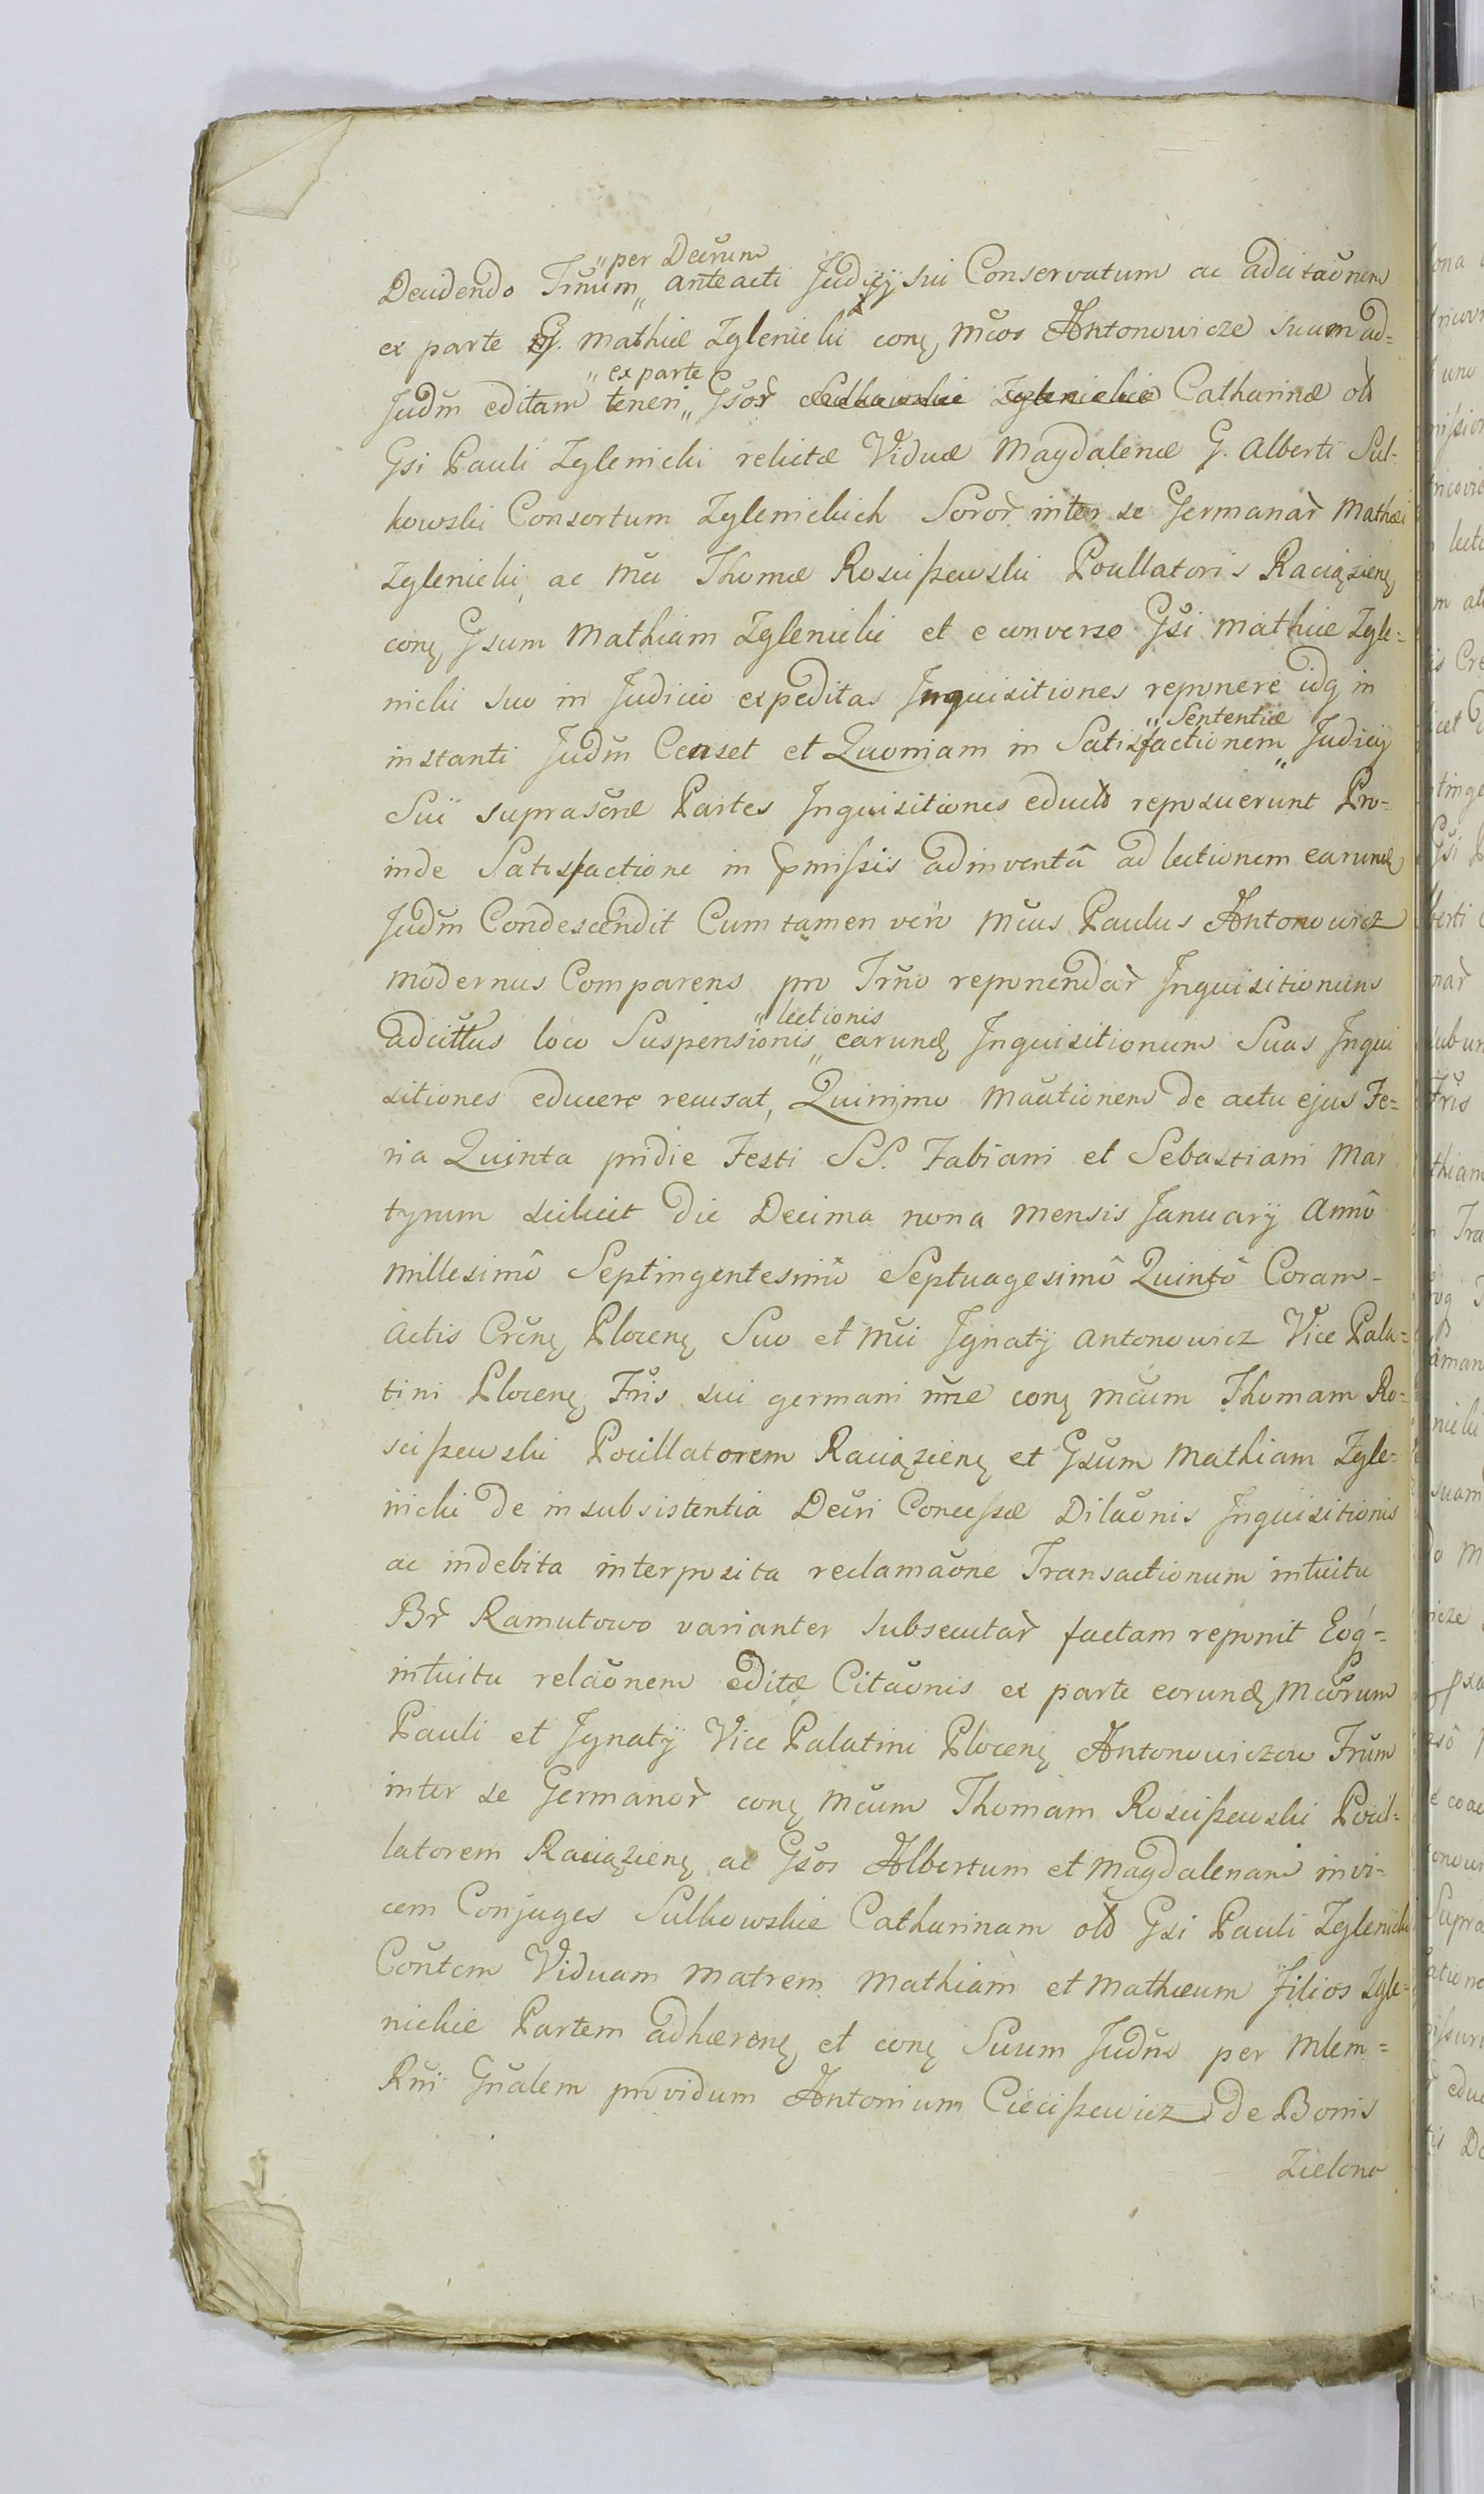 " per Decrum
Decidendo Trnum " anteacti Judicÿ sui Conservatum ac adcitaonem
ex parte G. Mathiæ Zglenicki conq Mcos Antonowicze suam ad=
" ex parte
Judm editam teneri " Gsor Sulkowskie Zglenickie Catharinæ olb
Gsi Pauli Zglenicki relictæ Viduæ Magdalenæ G. Alberti Sul=
kowski Consortum Zglenickich Soror inter se Germanar Mathæi
Zglenicki, ac Mci Thomæ Rosciszewski Pocillatoris Raciązienq
conq Gsum Mathiam Zglenicki et e converso Gsi Mathiæ Zgle=
nicki suo in Judicio expeditas Inquisitiones reponere idq in
" Sententiæ
instanti Judm Censet et Quoniam in Satisfactionem " Judicÿ
Sui suprascræ Partes Inquisitiones educto reposuerunt Pro=
inde Satisfactione in pmissis adinventâ ad lectionem earund
Judm Condescendit Cum tamen vero Mcus Paulus Antonowicz
modernus Comparens pro Trno reponendar Inquisitionum
" lectionis
adcittus loco Suspensionis " earund Inquisitionum Suas Inqui
sitiones educere recusat, Quinimo Mactionem de actu ejus Fe=
ria Quinta pridie Festi SS. Fabiani et Sebastiani Mar
tyrum scilicet die Decima nona mensis Januarÿ Annô
Millesimô Septingentesimô Septuagesimô Quintô Coram
Actis Crenq Plocenq Suo et Mci Ignatÿ Antonowicz Vice Pala=
tini Plocenq Fris sui germani nne conq Mcum Thomam Ro=
sciszewski Pocillatorem Raciązienq et Gsum Mathiam Zgle=
nicki de insubsistentia Decri Concessæ Dilaonis Inquisitionis
ac indebita interposita reclamaone Transactionum intuitu
Br Ramutowo varianter subsecutar factam reponit Eoq=
intuitu relaonem editæ Citaonis ex parte eorund Mcorum
Pauli et Ignatÿ Vice Palatini Plocenq Antonowiczow Frum
inter se Germanor conq Mcum Thomam Rosciszewski Pocil=
latorem Raciązienq ac Gsos Albertum et Magdalenam invi=
cem Conjuges Sulkowskie Catharinam olb Gsi Pauli Zglenicki
Contem Viduam Matrem Mathiam et Mathæum filios Zgle=
nickie Partem adhærenq et conq Suum Judm per Mlem=
Rni Gnalem providum Antonium Cieciszewicz de Bonis
Zielona